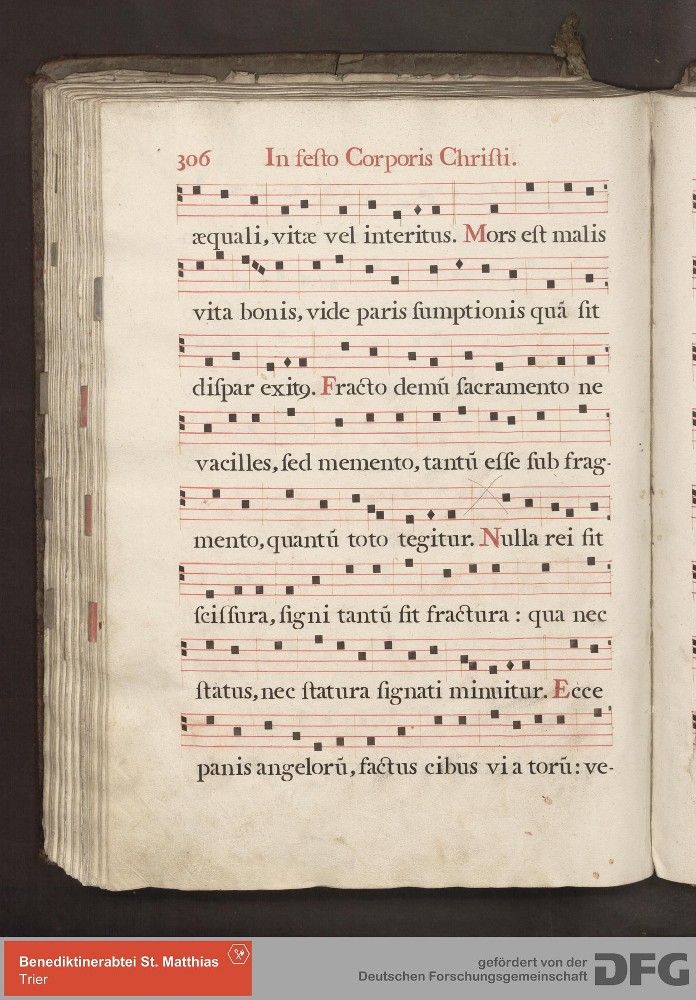 306 In feſto Corporis Chriſti.
æquali, vitæ vel interitus. Mors eſt malis
vita bonis, vide paris ſumptionis quã ſit
diſpar exitꝰ. Fracto demũ ſacramento ne
vacilles, ſed memento, tantũ eſſe ſub frag-
mento, quantũ toto tegitur. Nulla rei fit
ſciſſura, ſigni tantũ fit fractura : qua nec
ſtatus, nec ſtatura ſignati minuitur. Ecce
panis angelorũ, factus cibus vi a torũ: ve-
Benediktinerabtei St. Matthias
Trier
gefördert von der
Deutschen Forschungsgemeinschaft
DFG